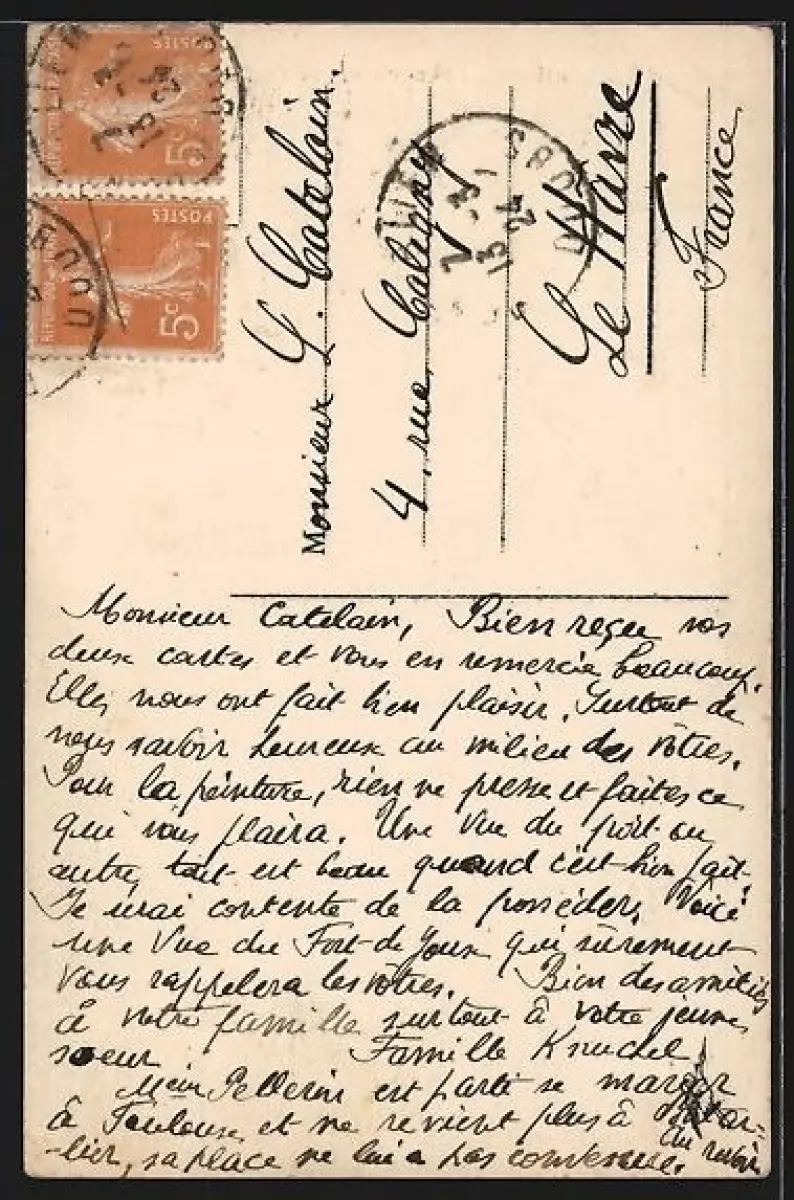 POSTES
5c
POSTES
5c
Monsieur L. Catelain.
4, rue Caligny
Le Havre
France
DOUBS
Monsieur Catelain, Bien reçue vos
deux cartes et vous en remercie beaucoup.
Elles nous ont fait bien plaisir. Surtout de
vous savoir heureux au milieu des vôtres.
Pour la peinture, rien ne presse et faites ce
qui vous plaira. Une Vue du port ou
autre, tout est beau quand c'est bien fait.
Je serai contente de la posséder. Voici
une Vue du Fort de Joux qui sûrement
vous rappelera les nôtres. Bien des amitiés
à votre famille surtout à votre jeune
soeur Famille
Pellerin est parti se marier
à Toulouse et ne revient plus à Pontar-
-lier, sa place ne lui a pas convenue.
Au revoir